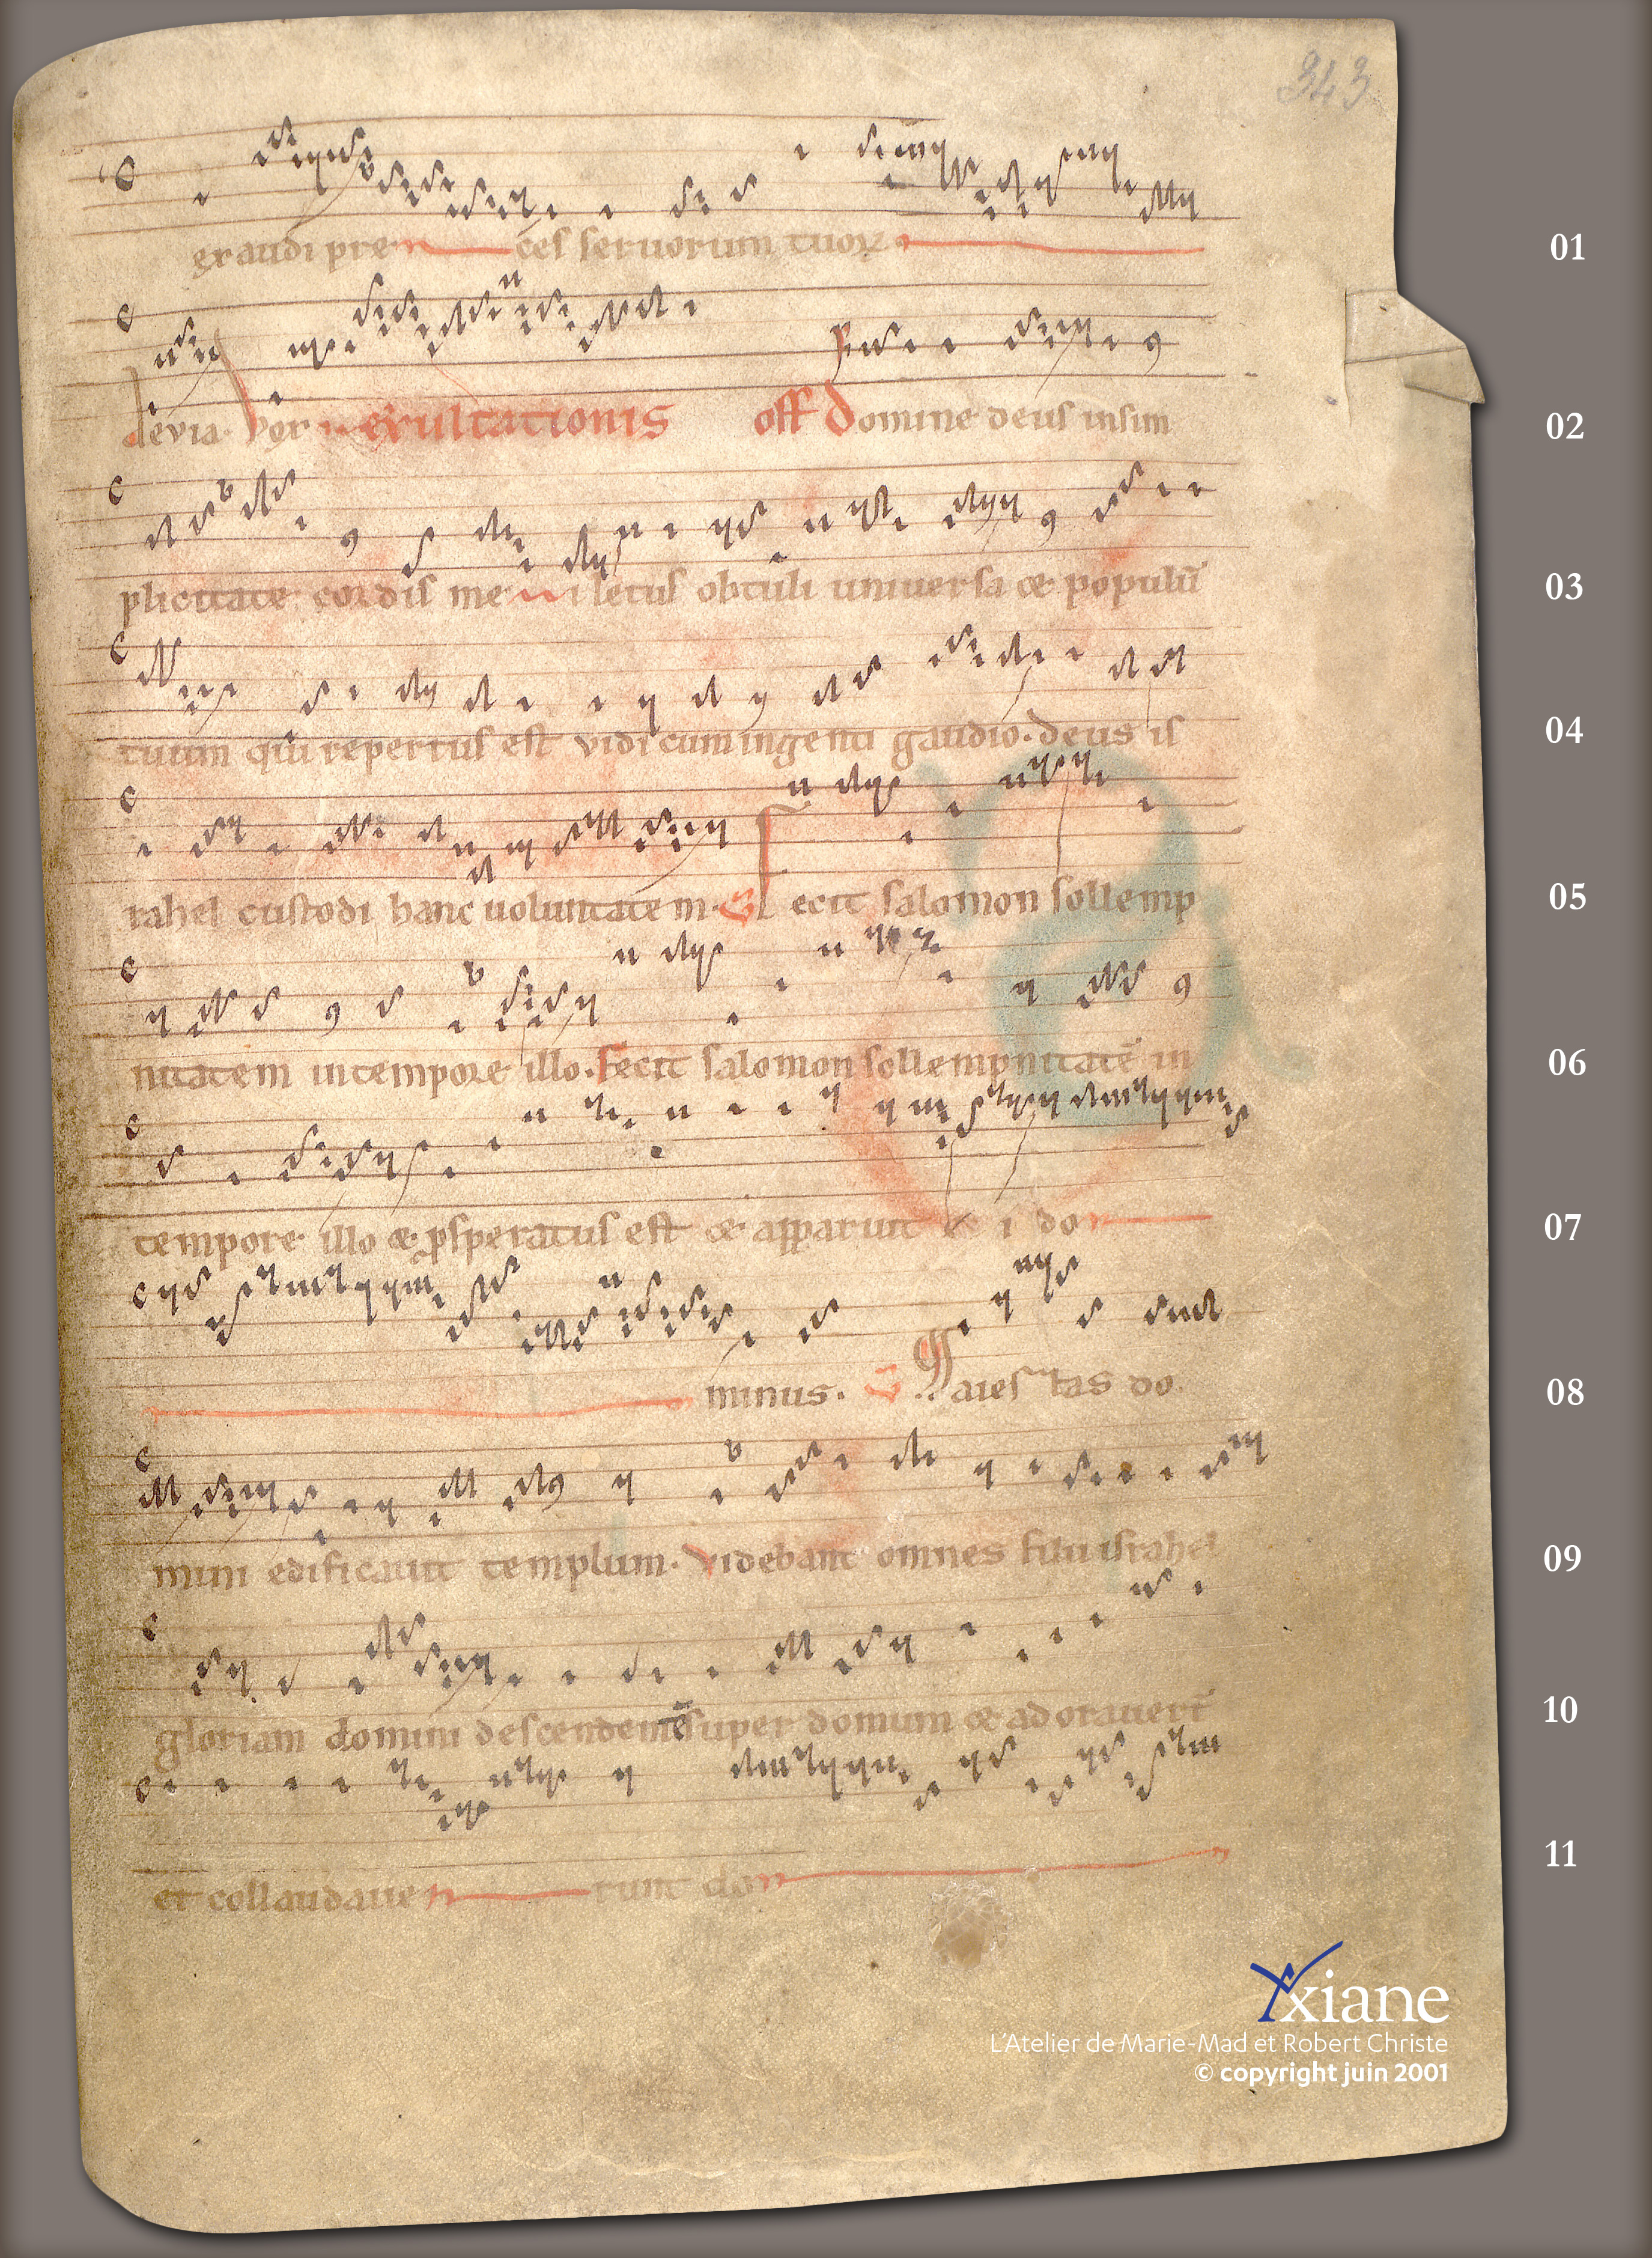 343
exaudi preces seruorum tuorꝝ 01
devia. Vox exultationis off Domine deus insim 02
plicitate cordis mei letus obtuli uniuersa & populū 03
tuum qui repertus est vidi cum ingenti gaudio. deus is 04
rahel custodi hanc uoluntatem. Fecit salomon sollemp 05
nitatem in tempore illo. Fecit salomon sollempnitatē in 06
tempore illo & psperatus est & apparuit ei do 07
minus. Maiestas do 08
mini edificauit templum. Videbant omnes filii israhel 09
gloriam domini descendentē super domum & adorauert̄ 10
et collaudauerunt do 11
Yxiane
L'Atelier de Marie-Mad et Robert Christe
© copyright juin 2001